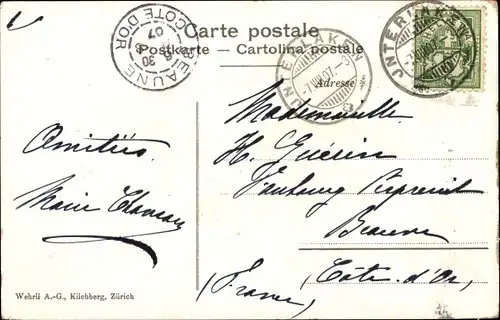 Carte postale
Postkarte – Cartolina postale
Adresse
BEAUNE
COTE D'OR
INTERLAKEN
INTERLAKEN
Amitiés
Marie
Mademoiselle
H. Guérin
Faubourg
Beaune
(Côte-d'Or)
(France)
Wehrli A.-G., Kilchberg, Zürich